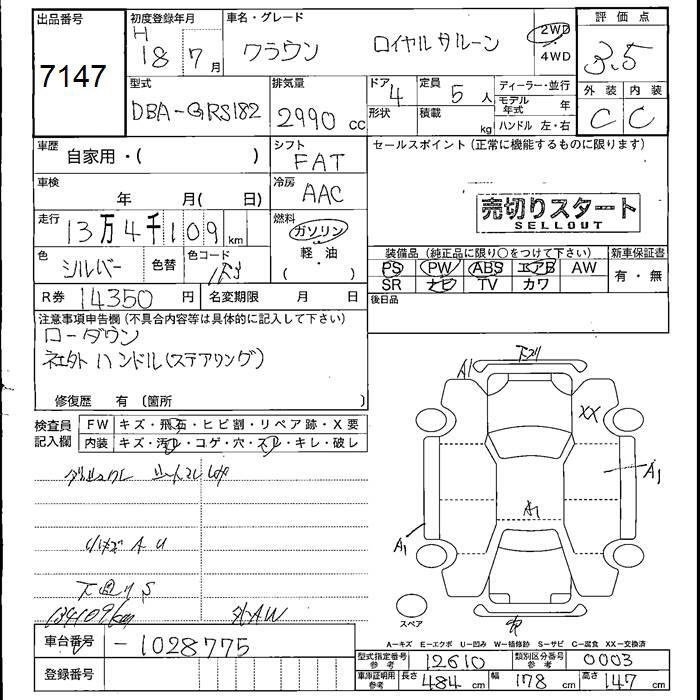 出品番号
7147
初度登録年月
H 18 7 月
車名・グレード
クラウン ロイヤルサルーン
2WD
・
4WD
評価点
3.5
外装 内装
C C
型式
DBA-GRS182
排気量
2990 cc
ドア
4
形状
定員
5 人
積載
kg
ディーラー・並行
モデル年式 年
ハンドル 左・右
車歴
自家用・( )
シフト
FAT
セールスポイント(正常に機能するものに限ります)
車検
年 月( 日)
冷房
AAC
売切りスタート
SELLOUT
走行
13万4千109 km
燃料
ガソリン
・
軽・油
( )
色
シルバー
色替
色コード
1F3
装備品(純正品に限り○をつけて下さい)
PS PW ABS エアB AW
SR ナビ TV カワ
新車保証書
有・無
R券 14350 円
名変期限 月 日
後日品
注意事項申告欄(不具合内容等は具体的に記入して下さい)
ローダウン
社外ハンドル(ステアリング)
修復歴 有(箇所 )
検査員記入欄
FW キズ・飛石・ヒビ割・リペア跡・X要
内装 キズ・汚レ・コゲ・穴・スレ・キレ・破レ
リハゲ A U
下廻り S
134109km
外AW
下廻り
A1
XX
A1
A1
A1
スペア
A-キズ E-エクボ U-凹み W-補修跡 S-サビ C-腐食 XX-交換済
車台番号
-1028775
登録番号
型式指定番号
参考
12610
類別区分番号
参考
0003
車庫証明用
参考
長さ 484 cm
幅 178 cm
高さ 147 cm